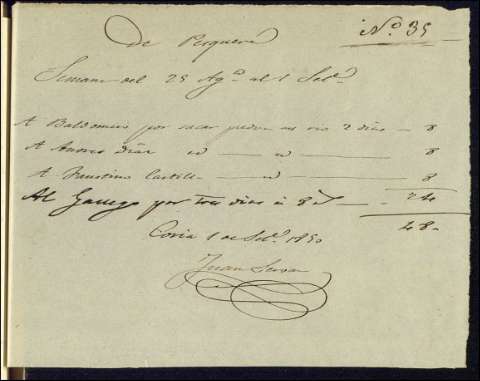 Nº 35
De Pesquera
Semana del 25 Agto al 1 Sete
A Baldomero por sacar piedra 2 dias — 8
A Andres Diaz id — id — 8
A Faustino Castill — id — 8
Al Gallego por tres dias á 8 rs — 24
48
Coria 1 de Sete. 1850
Juan